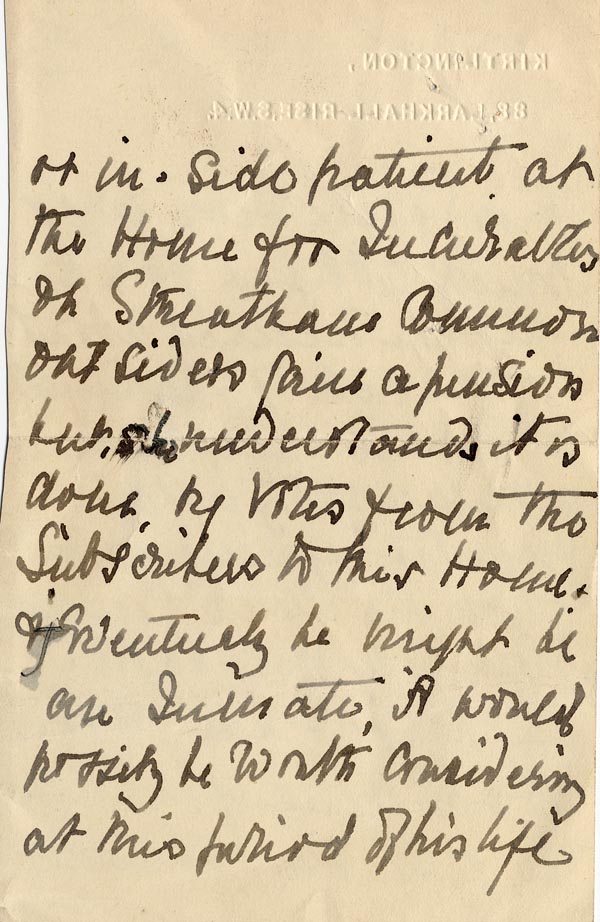 KIRTLINGTON,
88, LARKHALL-RISE, S.W.4.
or in-side patient at
the Home for Incurables
on Streatham Common
out siders gain a pension
but, she understands it is
done, by Votes from the
Subscribers to this Home.
if Eventually he might be
an Inmate, it would
possibly be Worth Considering
at this period of his life